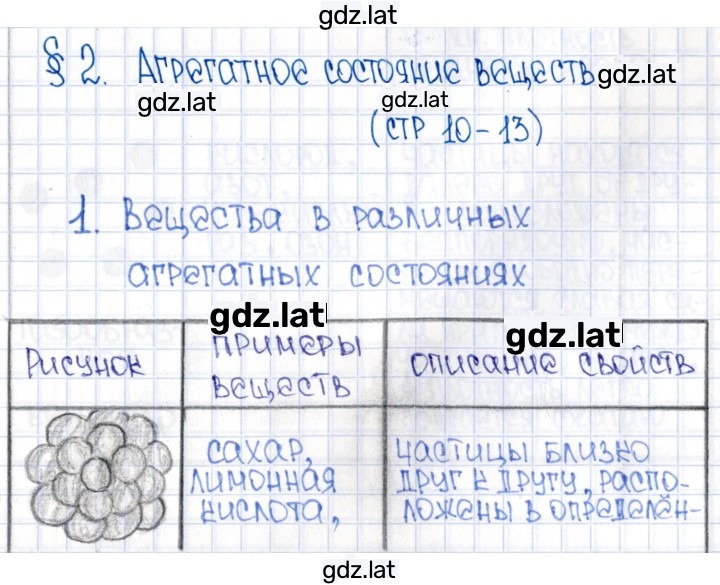 gdz.lat
§ 2. Агрегатное состояние веществ
gdz.lat
gdz.lat
gdz.lat
(стр 10-13)
1. Вещества в различных
агрегатных состояниях
gdz.lat
gdz.lat
Рисунок
примеры
веществ
описание свойств
сахар,
лимонная
кислота,
частицы близко
друг к другу, распо-
ложены в определён-
gdz.lat